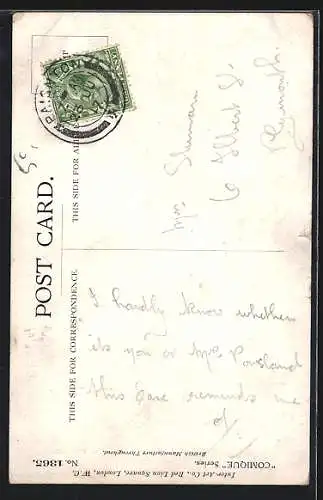 POST CARD.
THIS SIDE FOR CORRESPONDENCE
THIS SIDE FOR
Mrs
6 Albert St.
Plymouth.
I hardly know whether
its you or Mrs
this one reminds me
of.
"COMIQUE" Series. No. 1865.
Inter-Art Co., Red Lion Square, London, W.C.
British Manufacture Throughout.